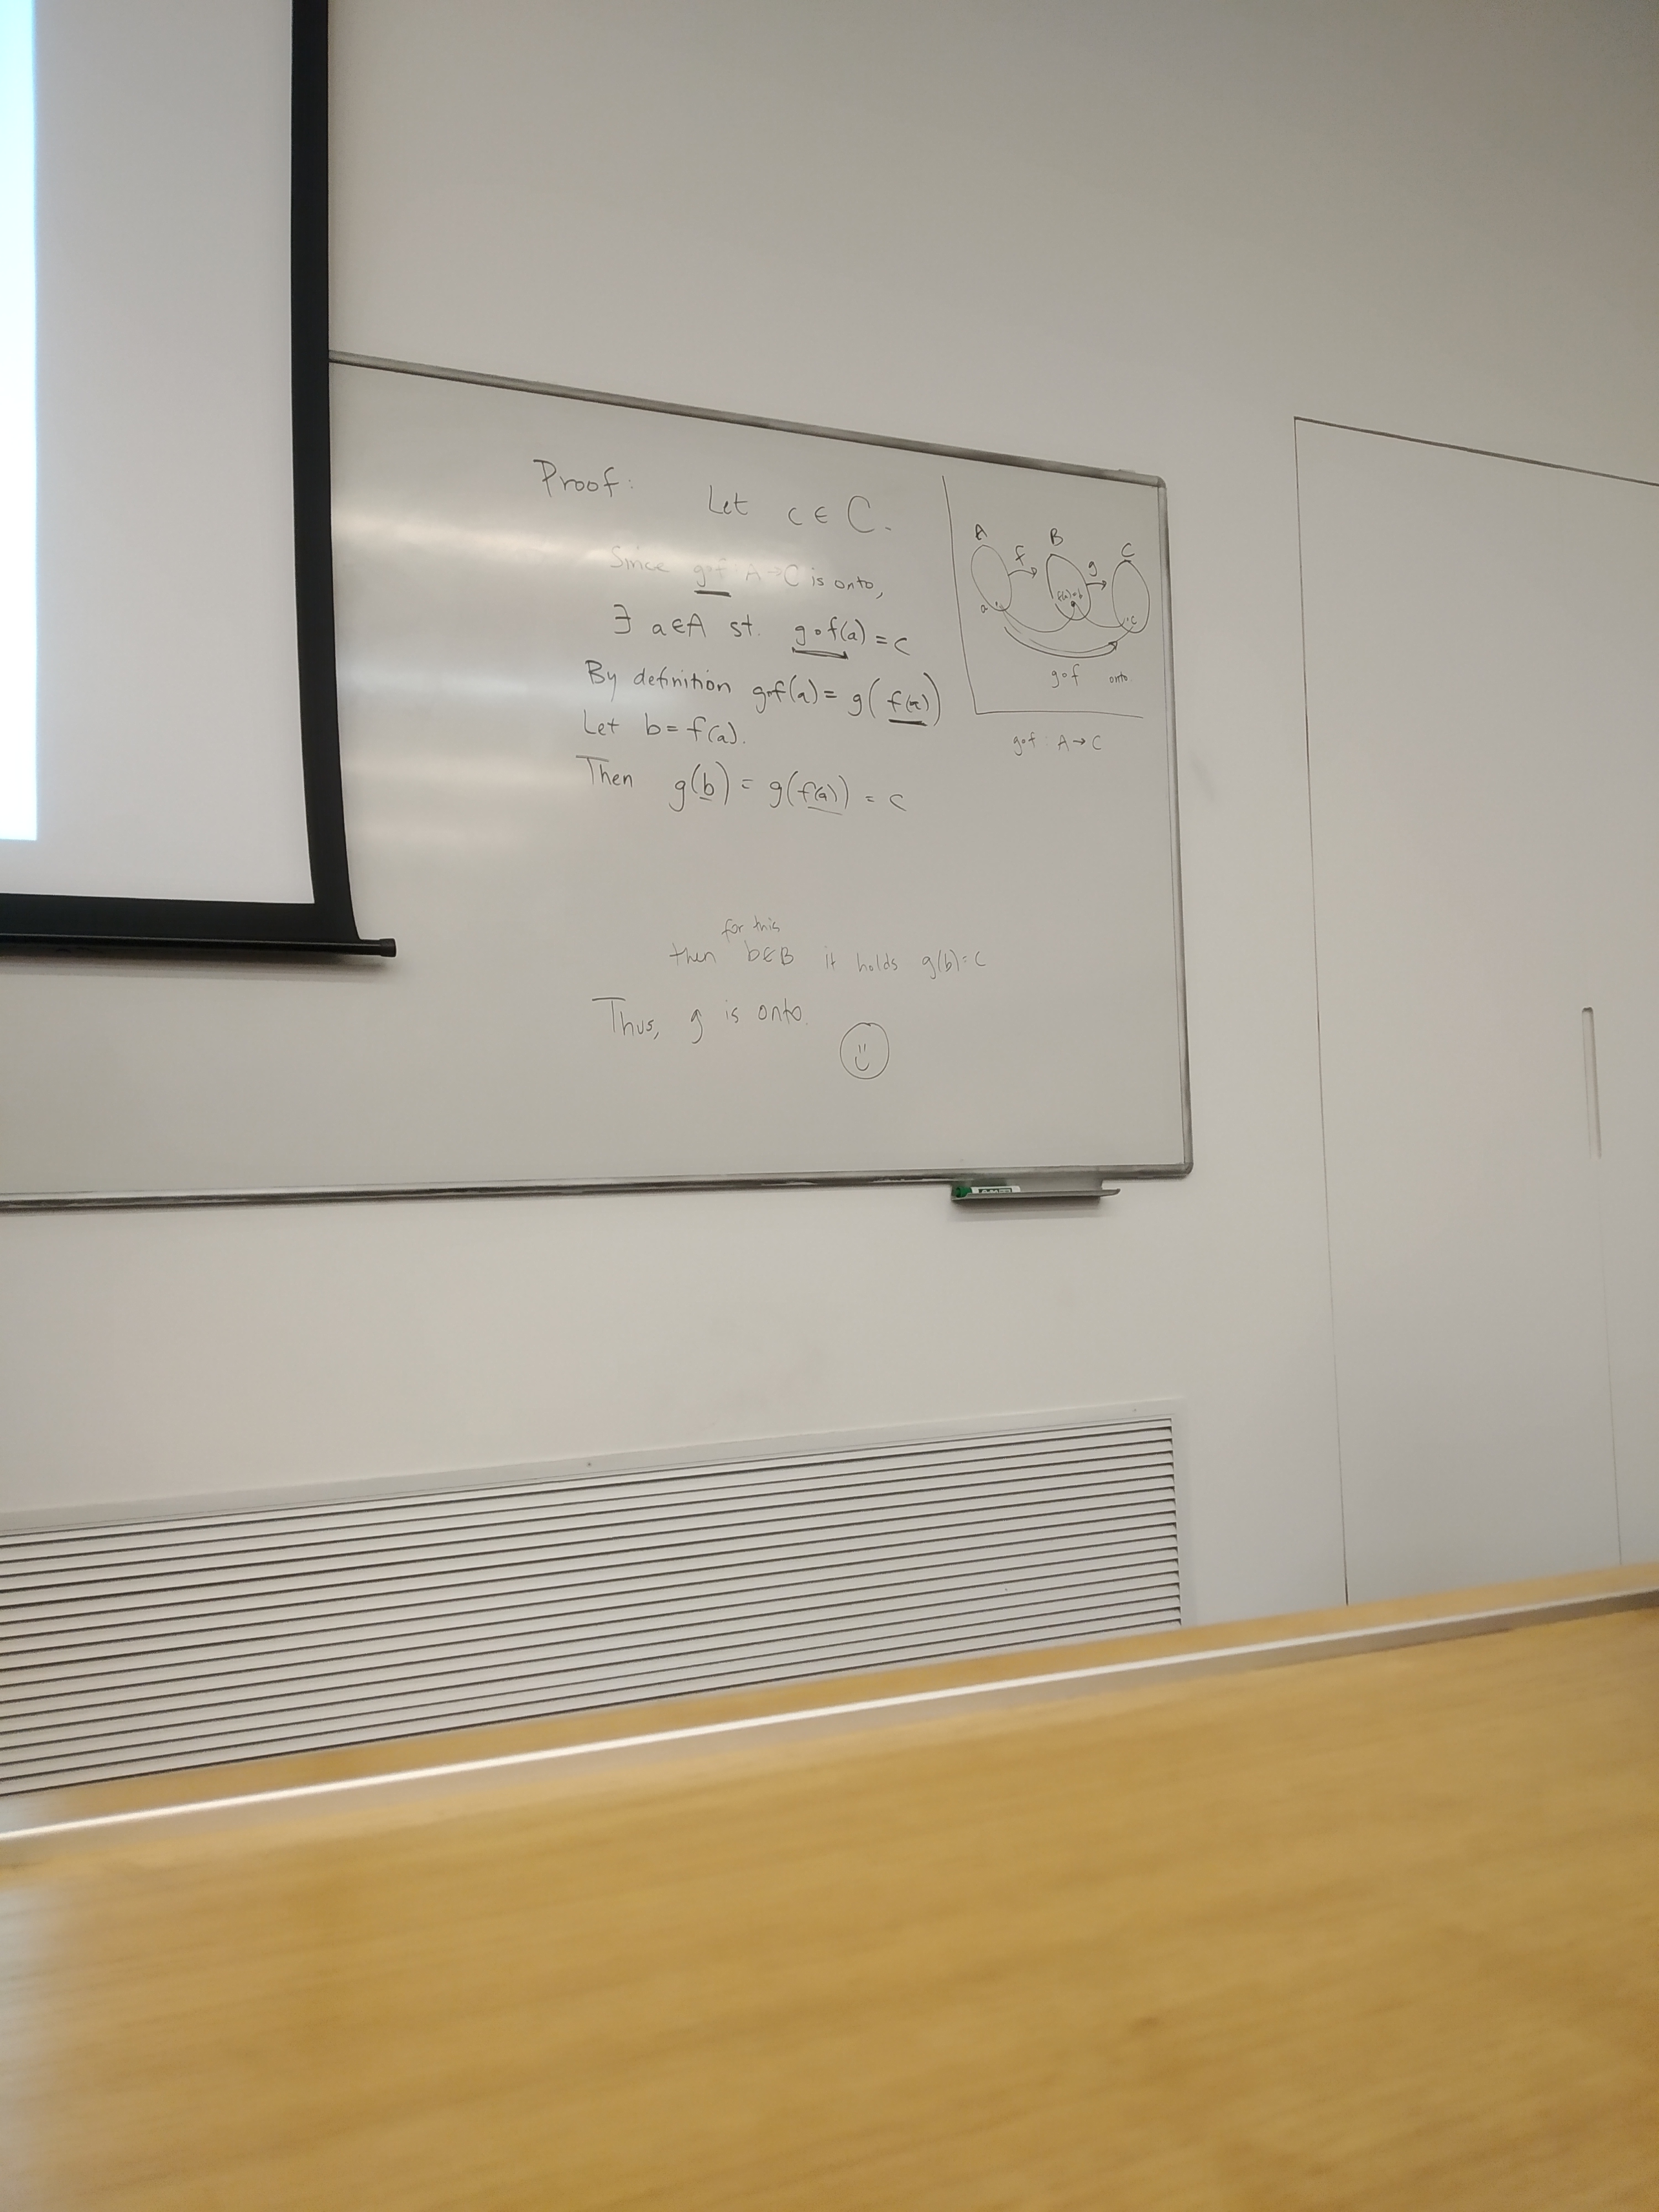 Proof: Let c ∈ C.
Since g∘f: A→C is onto,
∃ a∈A st. g∘f(a) = c
By definition g∘f(a) = g(f(a))
Let b = f(a).
Then g(b) = g(f(a)) = c
for this
then b∈B it holds g(b)=c
Thus, g is onto.
A B C
f g
f(a)=b
a c
g∘f onto
g∘f: A→C